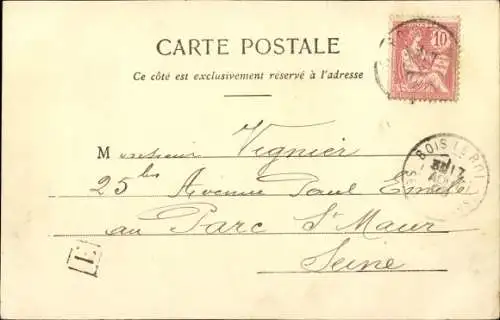 CARTE POSTALE
Ce côté est exclusivement réservé à l'adresse
10
Monsieur Vignier
BOIS LE ROI
25 bis Avenue Paul Emile
au Parc St Maur
Seine
E